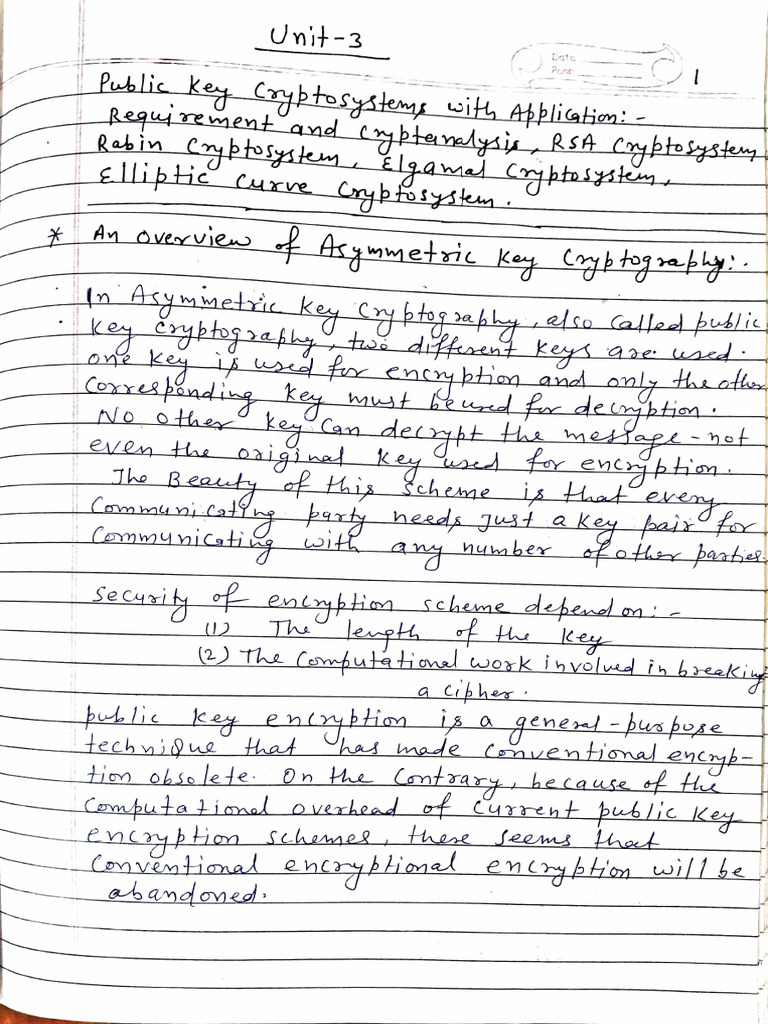 Unit-3
Date
Page
1
Public Key Cryptosystems with Application:-
Requirement and Cryptanalysis, RSA Cryptosystem
Rabin Cryptosystem, Elgamal Cryptosystem,
Elliptic Curve Cryptosystem.
* An overview of Asymmetric Key Cryptography:-
In Asymmetric Key Cryptography, also called public
Key Cryptography, two different keys are used.
one key is used for encryption and only the other
Corresponding key must be used for decryption.
No other key can decrypt the message - not
even the original key used for encryption.
The Beauty of this scheme is that every
Communicating party needs just a key pair for
Communicating with any number of other parties.
Security of encryption scheme depend on:-
(1) The length of the key
(2) The Computational work involved in breaking
a cipher.
Public key encryption is a general-purpose
technique that has made conventional encryp-
tion obsolete. On the Contrary, because of the
Computational overhead of current public key
encryption schemes, there seems that
Conventional encryptional encryption will be
abandoned.